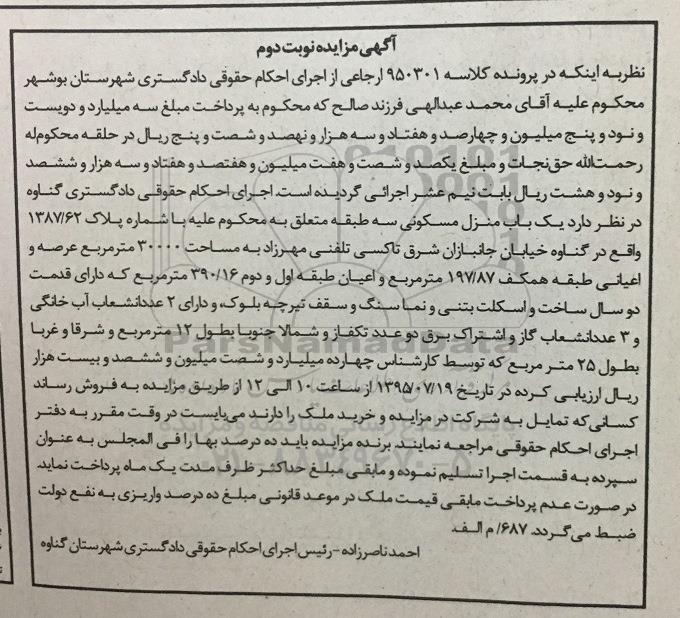 آگهی مزایده نوبت دوم
نظر به اینکه در پرونده کلاسه ۹۵۰۳۰۱ ارجاعی از اجرای احکام حقوقی دادگستری شهرستان بوشهر
محکوم علیه آقای محمد عبدالهی فرزند صالح که محکوم به پرداخت مبلغ سه میلیارد و دویست
و نود و پنج میلیون و چهارصد و هفتاد و سه هزار و نهصد و شصت و پنج ریال در حلقه محکوم‌له
رحمت‌الله حق‌نجات و مبلغ یکصد و شصت و هفت میلیون و هفتصد و هفتاد و سه هزار و ششصد
و نود و هشت ریال بابت نیم عشر اجرائی گردیده است. اجرای احکام حقوقی دادگستری گناوه
در نظر دارد یک باب منزل مسکونی سه طبقه متعلق به محکوم علیه با شماره پلاک ۱۳۸۷/۶۲
واقع در گناوه خیابان جانبازان شرق تاکسی تلفنی مهرزاد به مساحت ۳۰۰۰۰ مترمربع عرصه و
اعیانی طبقه همکف ۱۹۷/۸۷ مترمربع و اعیان طبقه اول و دوم ۳۹۰/۱۶ مترمربع که دارای قدمت
دو سال ساخت و اسکلت بتنی و نما سنگ و سقف تیرچه بلوک، و دارای ۲ عدد انشعاب آب خانگی
و ۳ عدد انشعاب گاز و اشتراک برق دو عدد تکفاز و شمالا جنوبا بطول ۱۲ مترمربع و شرقا و غربا
بطول ۲۵ متر مربع که توسط کارشناس چهارده میلیارد و شصت میلیون و ششصد و بیست هزار
ریال ارزیابی کرده در تاریخ ۱۳۹۵/۰۷/۱۹ از ساعت ۱۰ الی ۱۲ از طریق مزایده به فروش رساند
کسانی که تمایل به شرکت در مزایده و خرید ملک را دارند می‌بایست در وقت مقرر به دفتر
اجرای احکام حقوقی مراجعه نمایند. برنده مزایده باید ده درصد بها را فی المجلس به عنوان
سپرده به قسمت اجرا تسلیم نموده و مابقی مبلغ حداکثر ظرف مدت یک ماه پرداخت نماید.
در صورت عدم پرداخت مابقی قیمت ملک در موعد قانونی مبلغ ده درصد واریزی به نفع دولت
ضبط می‌گردد. ۶۸۷/ م الف.
احمد ناصرزاده - رئیس اجرای احکام حقوقی دادگستری شهرستان گناوه
ParsNamadData